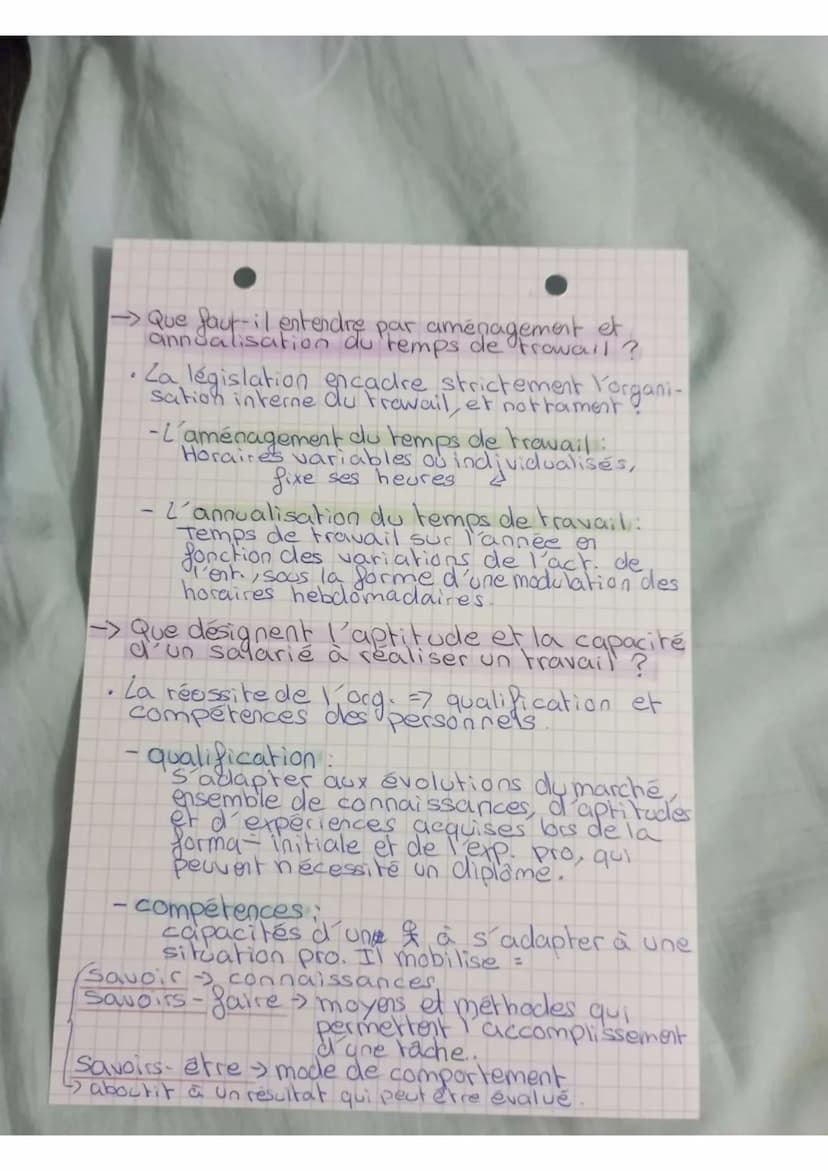 → Que faut-il entendre par aménagement et
annualisation du temps de travail ?
• La législation encadre strictement l'organi-
sation interne du travail, et nottament :
- L'aménagement du temps de travail :
Horaires variables ou individualisés,
fixe ses heures
- L'annualisation du temps de travail :
Temps de travail sur l'année en
fonction des variations de l'act. de
l'ent., sous la forme d'une modulation des
horaires hebdomadaires.
→ Que désignent l'aptitude et la capacité
d'un salarié à réaliser un travail ?
• La réussite de l'org. => qualification et
compétences des personnels.
- qualification :
S'adapter aux évolutions du marché,
ensemble de connaissances, d'aptitudes
et d'expériences acquises lors de la
forma- initiale et de l'exp. pro, qui
peuvent nécessité un diplôme.
- compétences :
capacités d'une à s'adapter à une
situation pro. Il mobilise :
Savoir → connaissances
Savoirs-faire → moyens et méthodes qui
permettent l'accomplissement
d'une tâche.
Savoirs-être → mode de comportement
→ aboutir à un résultat qui peut être évalué.